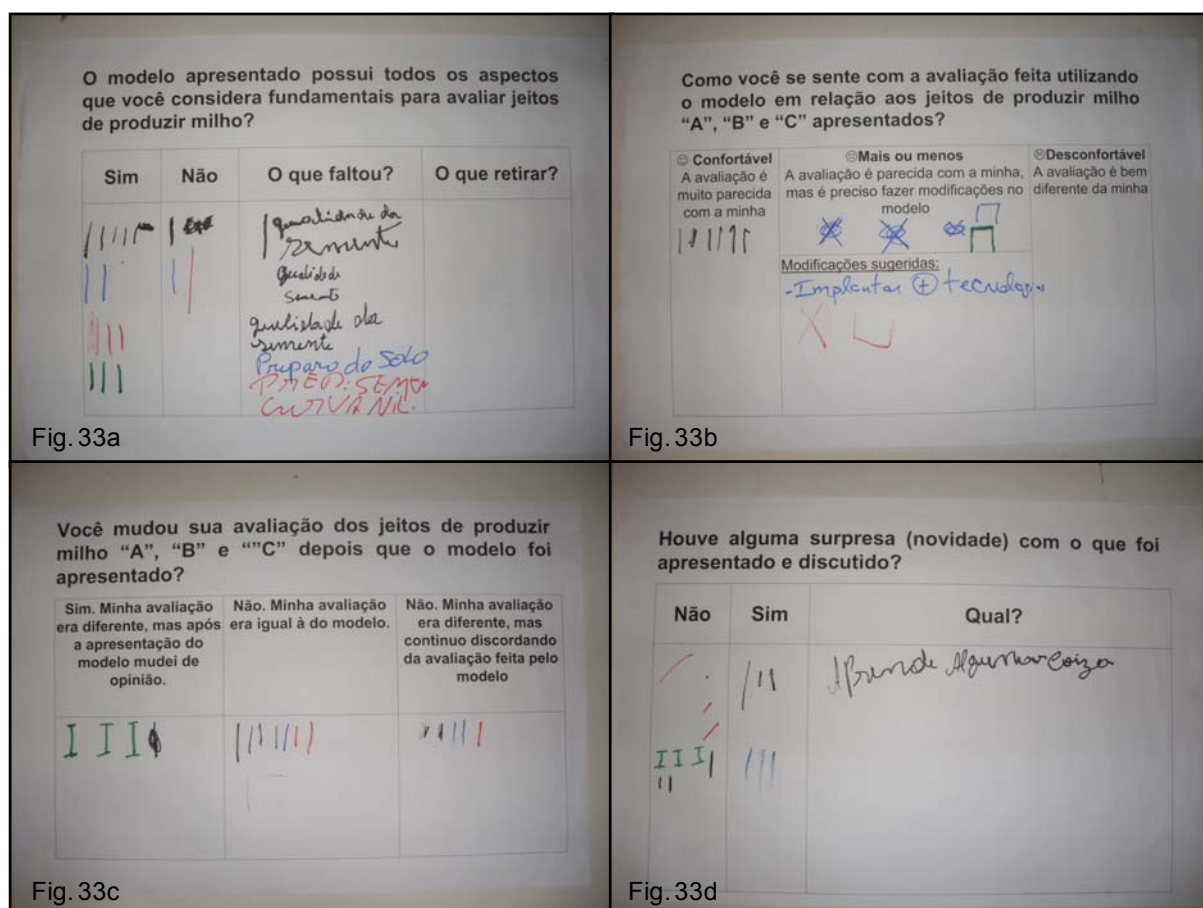 O modelo apresentado possui todos os aspectos
que você considera fundamentais para avaliar jeitos
de produzir milho?
Sim Não O que faltou? O que retirar?
qualidade da
semente
qualidade
semente
qualidade da
semente
Preparo do Solo
CURVA NIL.
Fig. 33a
Como você se sente com a avaliação feita utilizando
o modelo em relação aos jeitos de produzir milho
“A”, “B” e “C” apresentados?
☺ Confortável
A avaliação é
muito parecida
com a minha
😐Mais ou menos
A avaliação é parecida com a minha,
mas é preciso fazer modificações no
modelo
Modificações sugeridas:
-Implantar + tecnologia
☹Desconfortável
A avaliação é bem
diferente da minha
Fig. 33b
Você mudou sua avaliação dos jeitos de produzir
milho “A”, “B” e “”C” depois que o modelo foi
apresentado?
Sim. Minha avaliação
era diferente, mas após
a apresentação do
modelo mudei de
opinião.
Não. Minha avaliação
era igual à do modelo.
Não. Minha avaliação
era diferente, mas
continuo discordando
da avaliação feita pelo
modelo
Fig. 33c
Houve alguma surpresa (novidade) com o que foi
apresentado e discutido?
Não Sim Qual?
Aprende Alguma Coiza
Fig. 33d